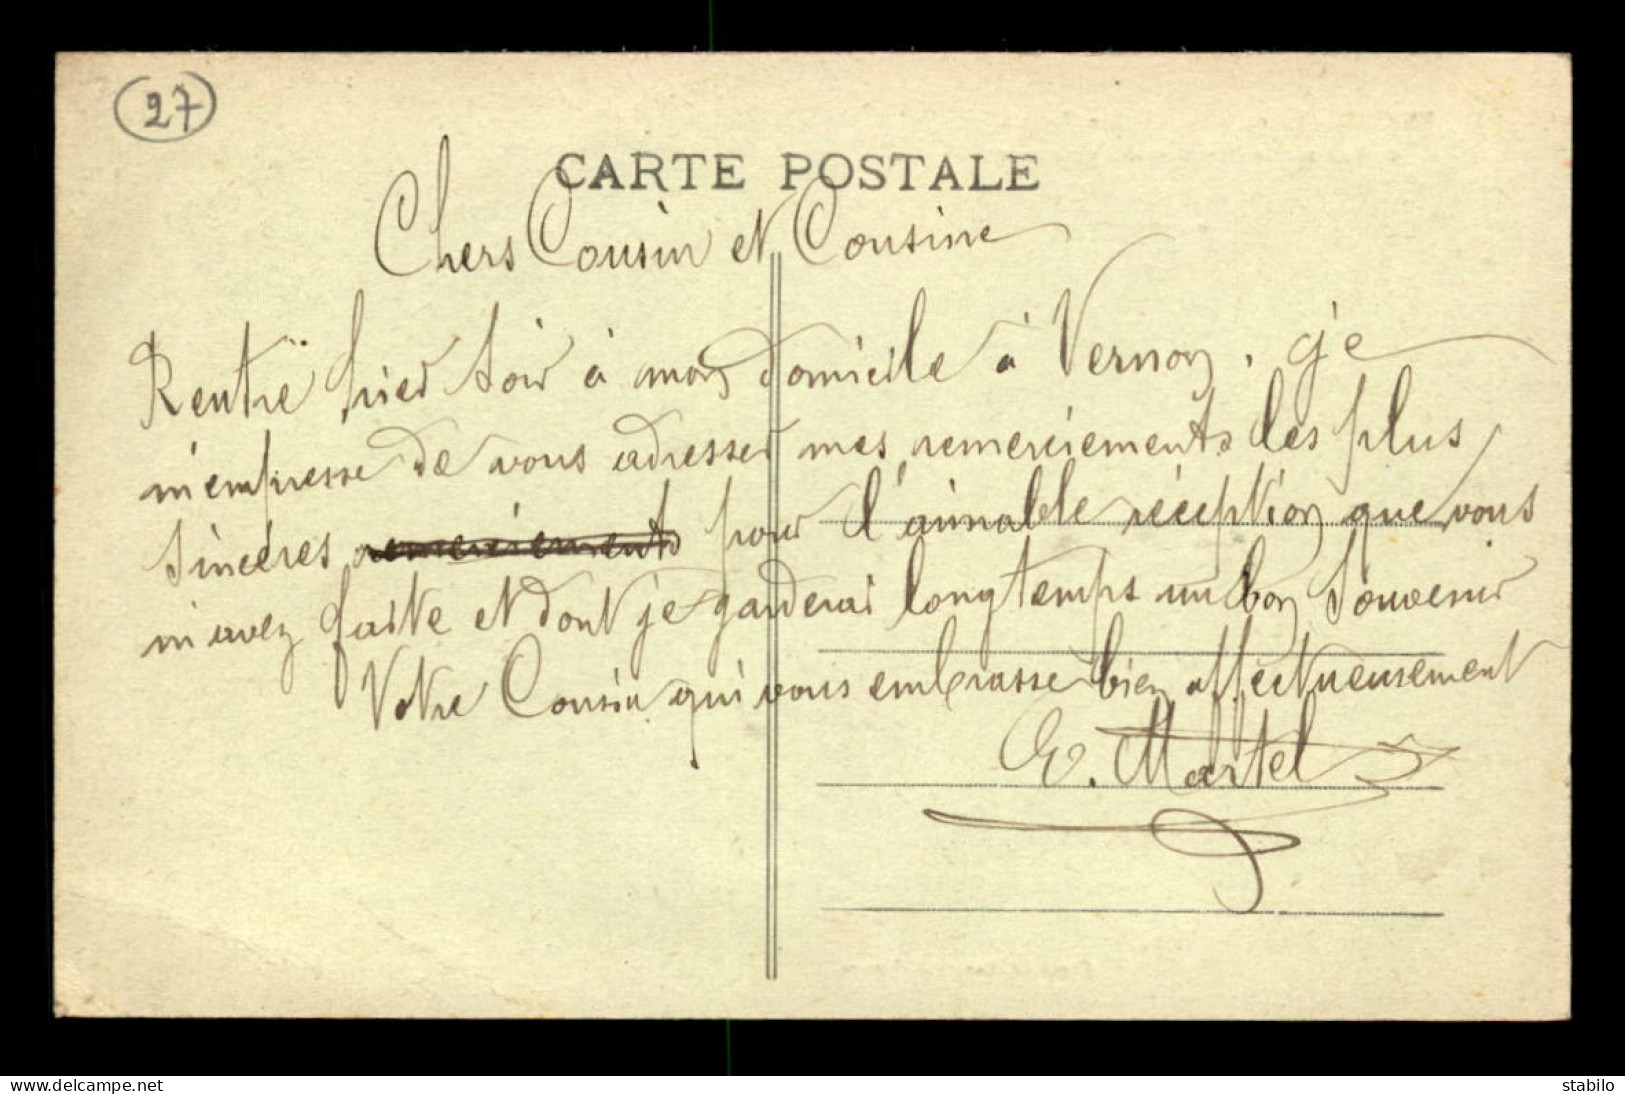 27
CARTE POSTALE
Chers Cousin et Cousine
Rentré hier soir à mon domicile à Vernon. je
m'empresse de vous adresser mes remerciements les plus
sincéres remerciements pour l'aimable réception que vous
m'avez faite et dont je garderai longtemps un bon souvenir
Votre Cousin qui vous embrasse bien affectueusement
E. Martel
www.delcampe.net
stabilo